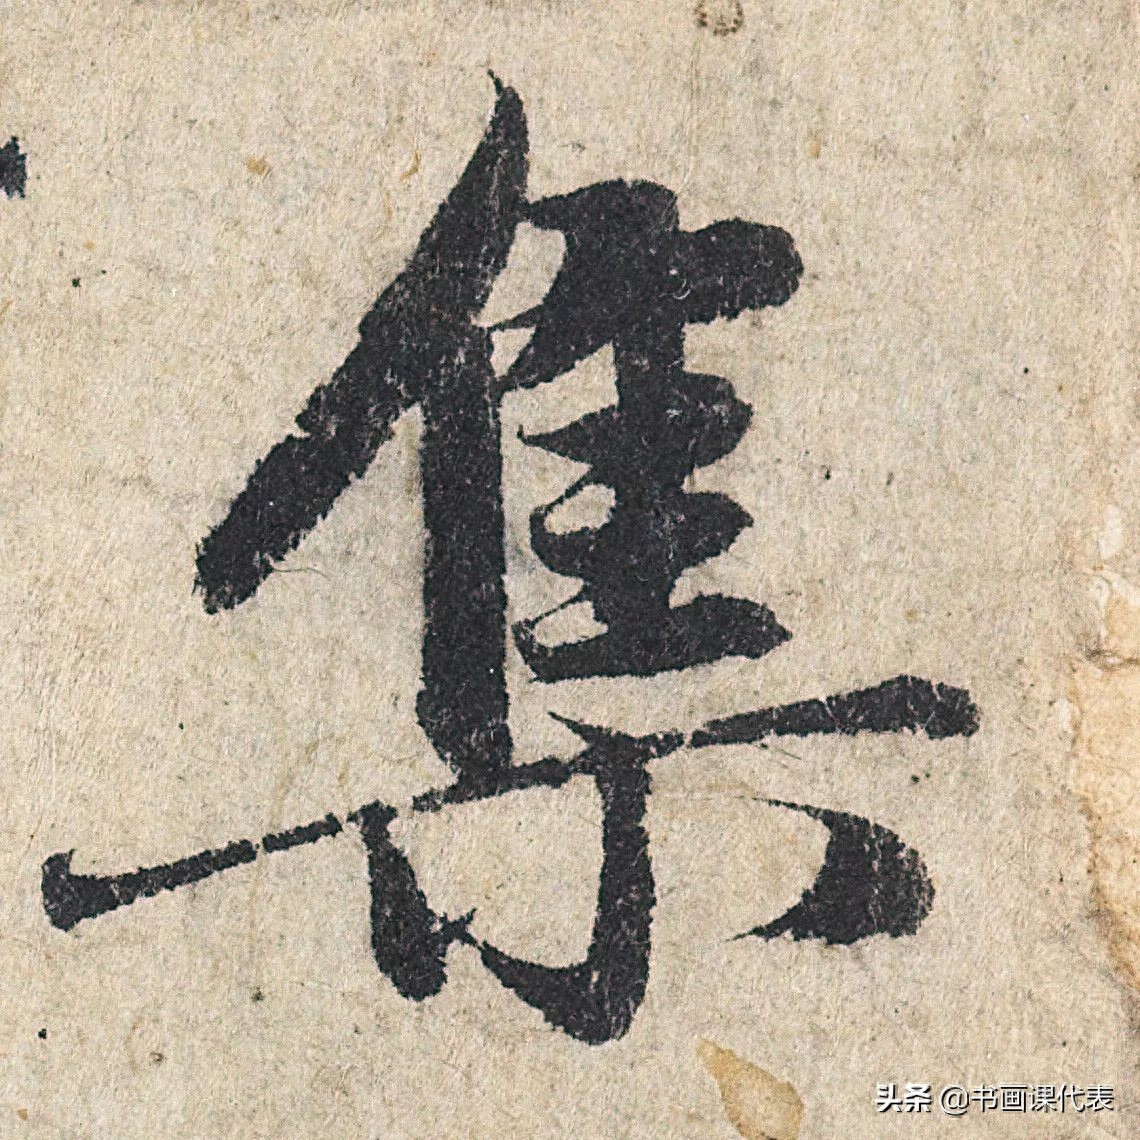 集
头条 @书画课代表